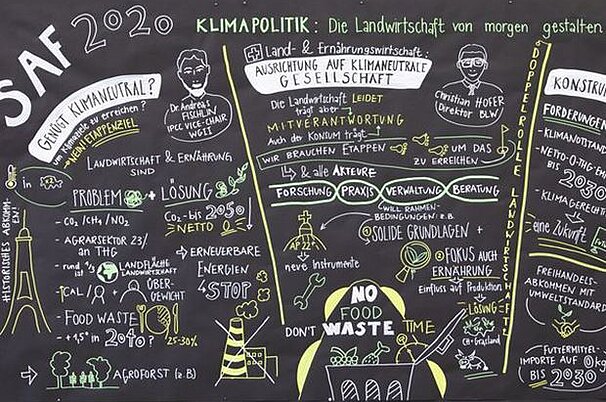 SAF 2020
KLIMAPOLITIK: Die Landwirtschaft von morgen gestalten
GENÜGT KLIMANEUTRAL?
um Klimaziele zu erreichen?
→ NEIN ETAPPENZIEL
Dr. Andreas
FISCHLIN
IPCC VICE-CHAIR
WGII
LANDWIRTSCHAFT & ERNÄHRUNG
SIND
PROBLEM + LÖSUNG
HISTORISCHES ABKOMMEN
- CO₂/CH₄/NO₂
- AGRARSEKTOR 23%
an THG
- rund ist's LANDFLÄCHE
LANDWIRTSCHAFT
CAL/ + ÜBER-
GEWICHT
- FOOD WASTE
25-30%
- +1,5° in 2040?
→ AGROFORST (z.B)
CO₂- bis 2050
NETTO
→ ERNEUERBARE
ENERGIEN
STOP
Land- & Ernährungswirtschaft:
AUSRICHTUNG AUF KLIMANEUTRALE
GESELLSCHAFT
Christian HOFER
Direktor BLW
Die Landwirtschaft LEIDET
trägt aber
MITVERANTWORTUNG
Auch der Konsum trägt
WIR BRAUCHEN ETAPPEN UM DAS
ZU ERREICHEN
↳ & alle AKTEURE
FORSCHUNG PRAXIS VERWALTUNG BERATUNG
will RAHMEN-
BEDINGUNGEN: z.B.
AP 22+
SOLIDE GRUNDLAGEN +
neue Instrumente
FOKUS AUCH
ERNÄHRUNG
Einfluss auf Produktion
LÖSUNG
CH-Grasland
NO
FOOD
DON'T WASTE TIME
DOPPELROLLE LANDWIRTSCHAFT
KONSTRU
FORDERUNGEN
- KLIMANOTSTAND
- NETTO-0-THG-
BIS 2030
- KLIMAGERECHT
eine Zukunft
FREIHANDELS-
ABKOMMEN MIT
UMWELTSTANDAR
FUTTERMITTEL-
IMPORTE AUF 0 kg
BIS 2030